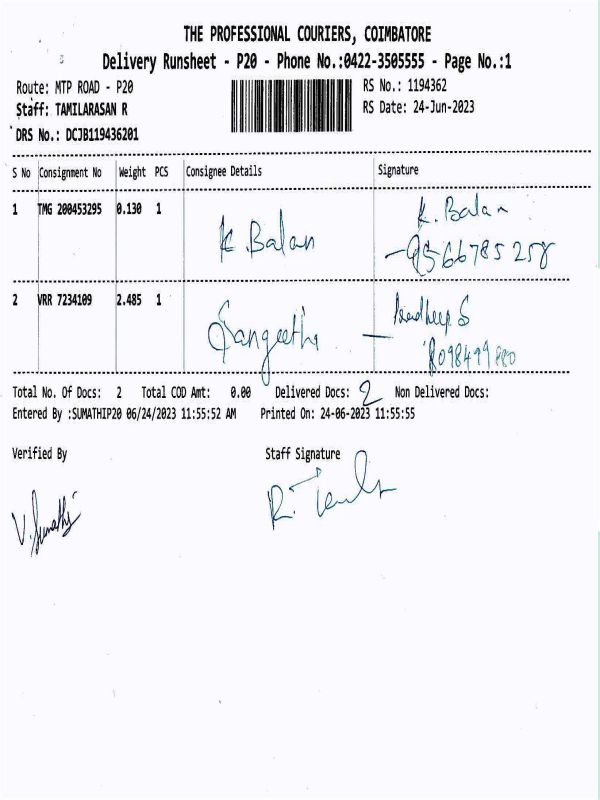 THE PROFESSIONAL COURIERS, COIMBATORE
Delivery Runsheet - P20 - Phone No.:0422-3505555 - Page No.:1
Route: MTP ROAD - P20 RS No.: 1194362
Staff: TAMILARASAN R RS Date: 24-Jun-2023
DRS No.: DCJB119436201
S No Consignment No Weight PCS Consignee Details Signature
1 TMG 200453295 0.130 1 K. Balan K. Balan
9566785258
2 VRR 7234109 2.485 1 Sangeetha - Pradheep S
8098499880
Total No. Of Docs: 2 Total COD Amt: 0.00 Delivered Docs: 2 Non Delivered Docs:
Entered By :SUMATHIP20 06/24/2023 11:55:52 AM Printed On: 24-06-2023 11:55:55
Verified By Staff Signature
V. Sumathi R.